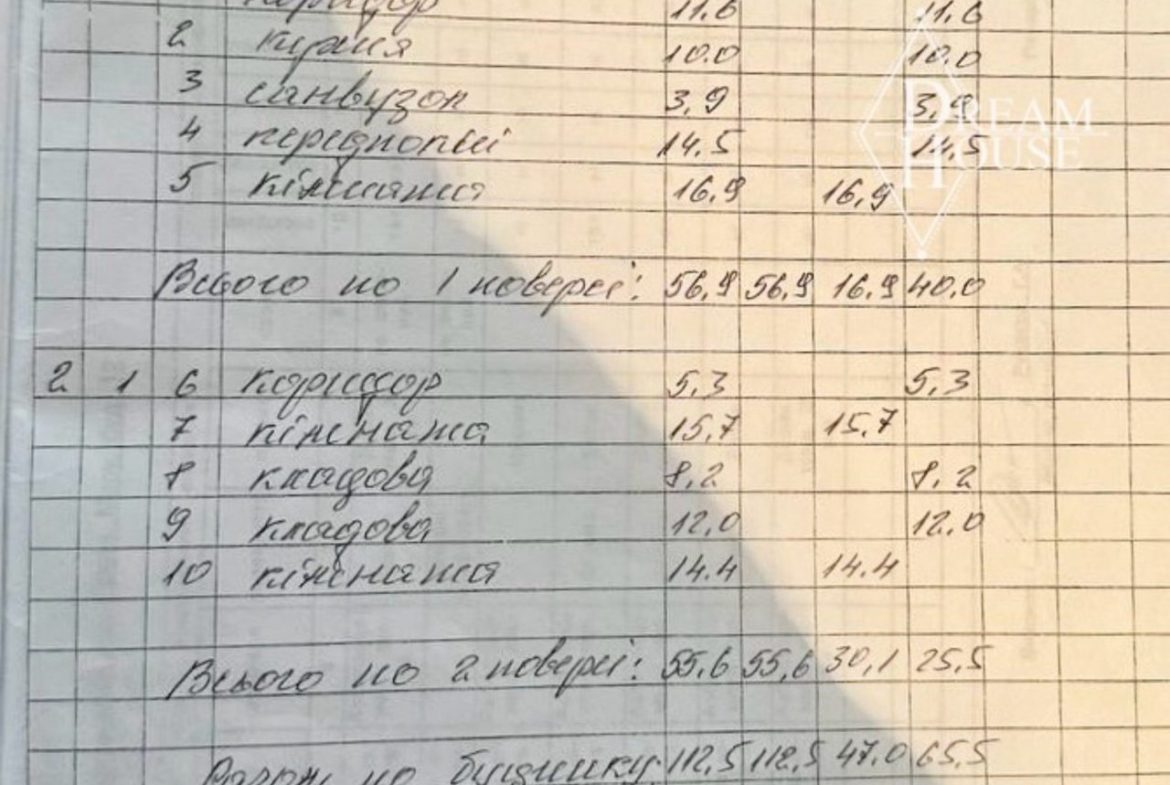 коридор 11.6 11.6
2 кухня 10.0 10.0
3 санвузол 3.9 3.9
4 передпокій 14.5 14.5
5 кімната 16.9 16.9
Всього по 1 поверсі: 56.9 56.9 16.9 40.0
2 1 6 коридор 5.3 5.3
7 кімната 15.7 15.7
8 кладова 8.2 8.2
9 кладова 12.0 12.0
10 кімната 14.4 14.4
Всього по 2 поверсі: 55.6 55.6 30.1 25.5
Разом по будинку: 112.5 112.5 47.0 65.5
DREAM
HOUSE